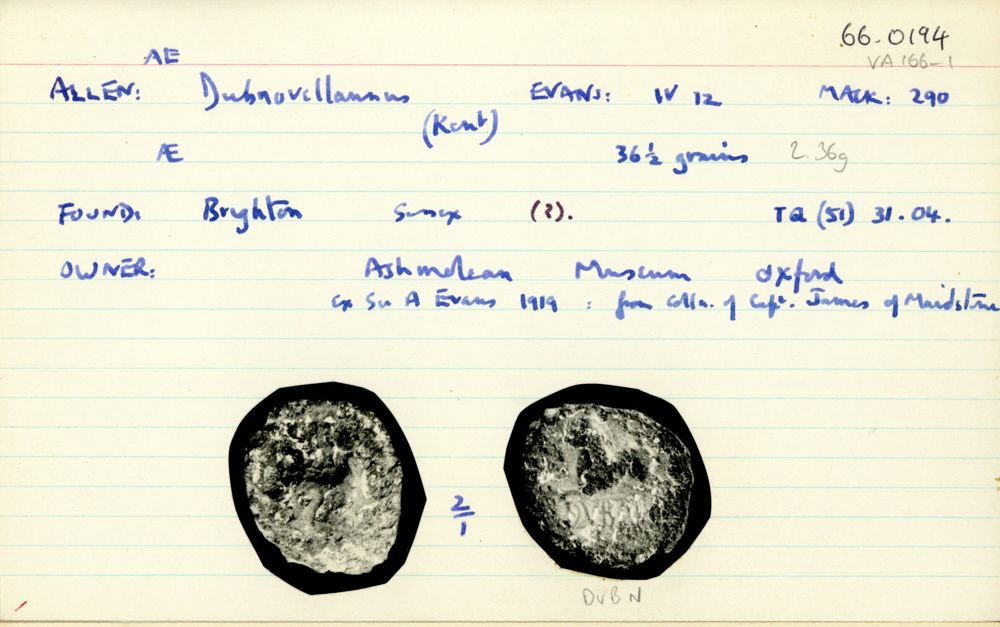 66.0194
VA 166-1
AE
ALLEN: Dubnovellaunus EVANS: IV 12 MACK: 290
(Kent)
Æ 36½ grains 2.36g
FOUND: Brighton Sussex (?). TQ (51) 31.04.
OWNER: Ashmolean Museum Oxford
ex Sir A Evans 1919 : from colln. of Capt. James of Maidstone
2/1
DVBN
DVBN